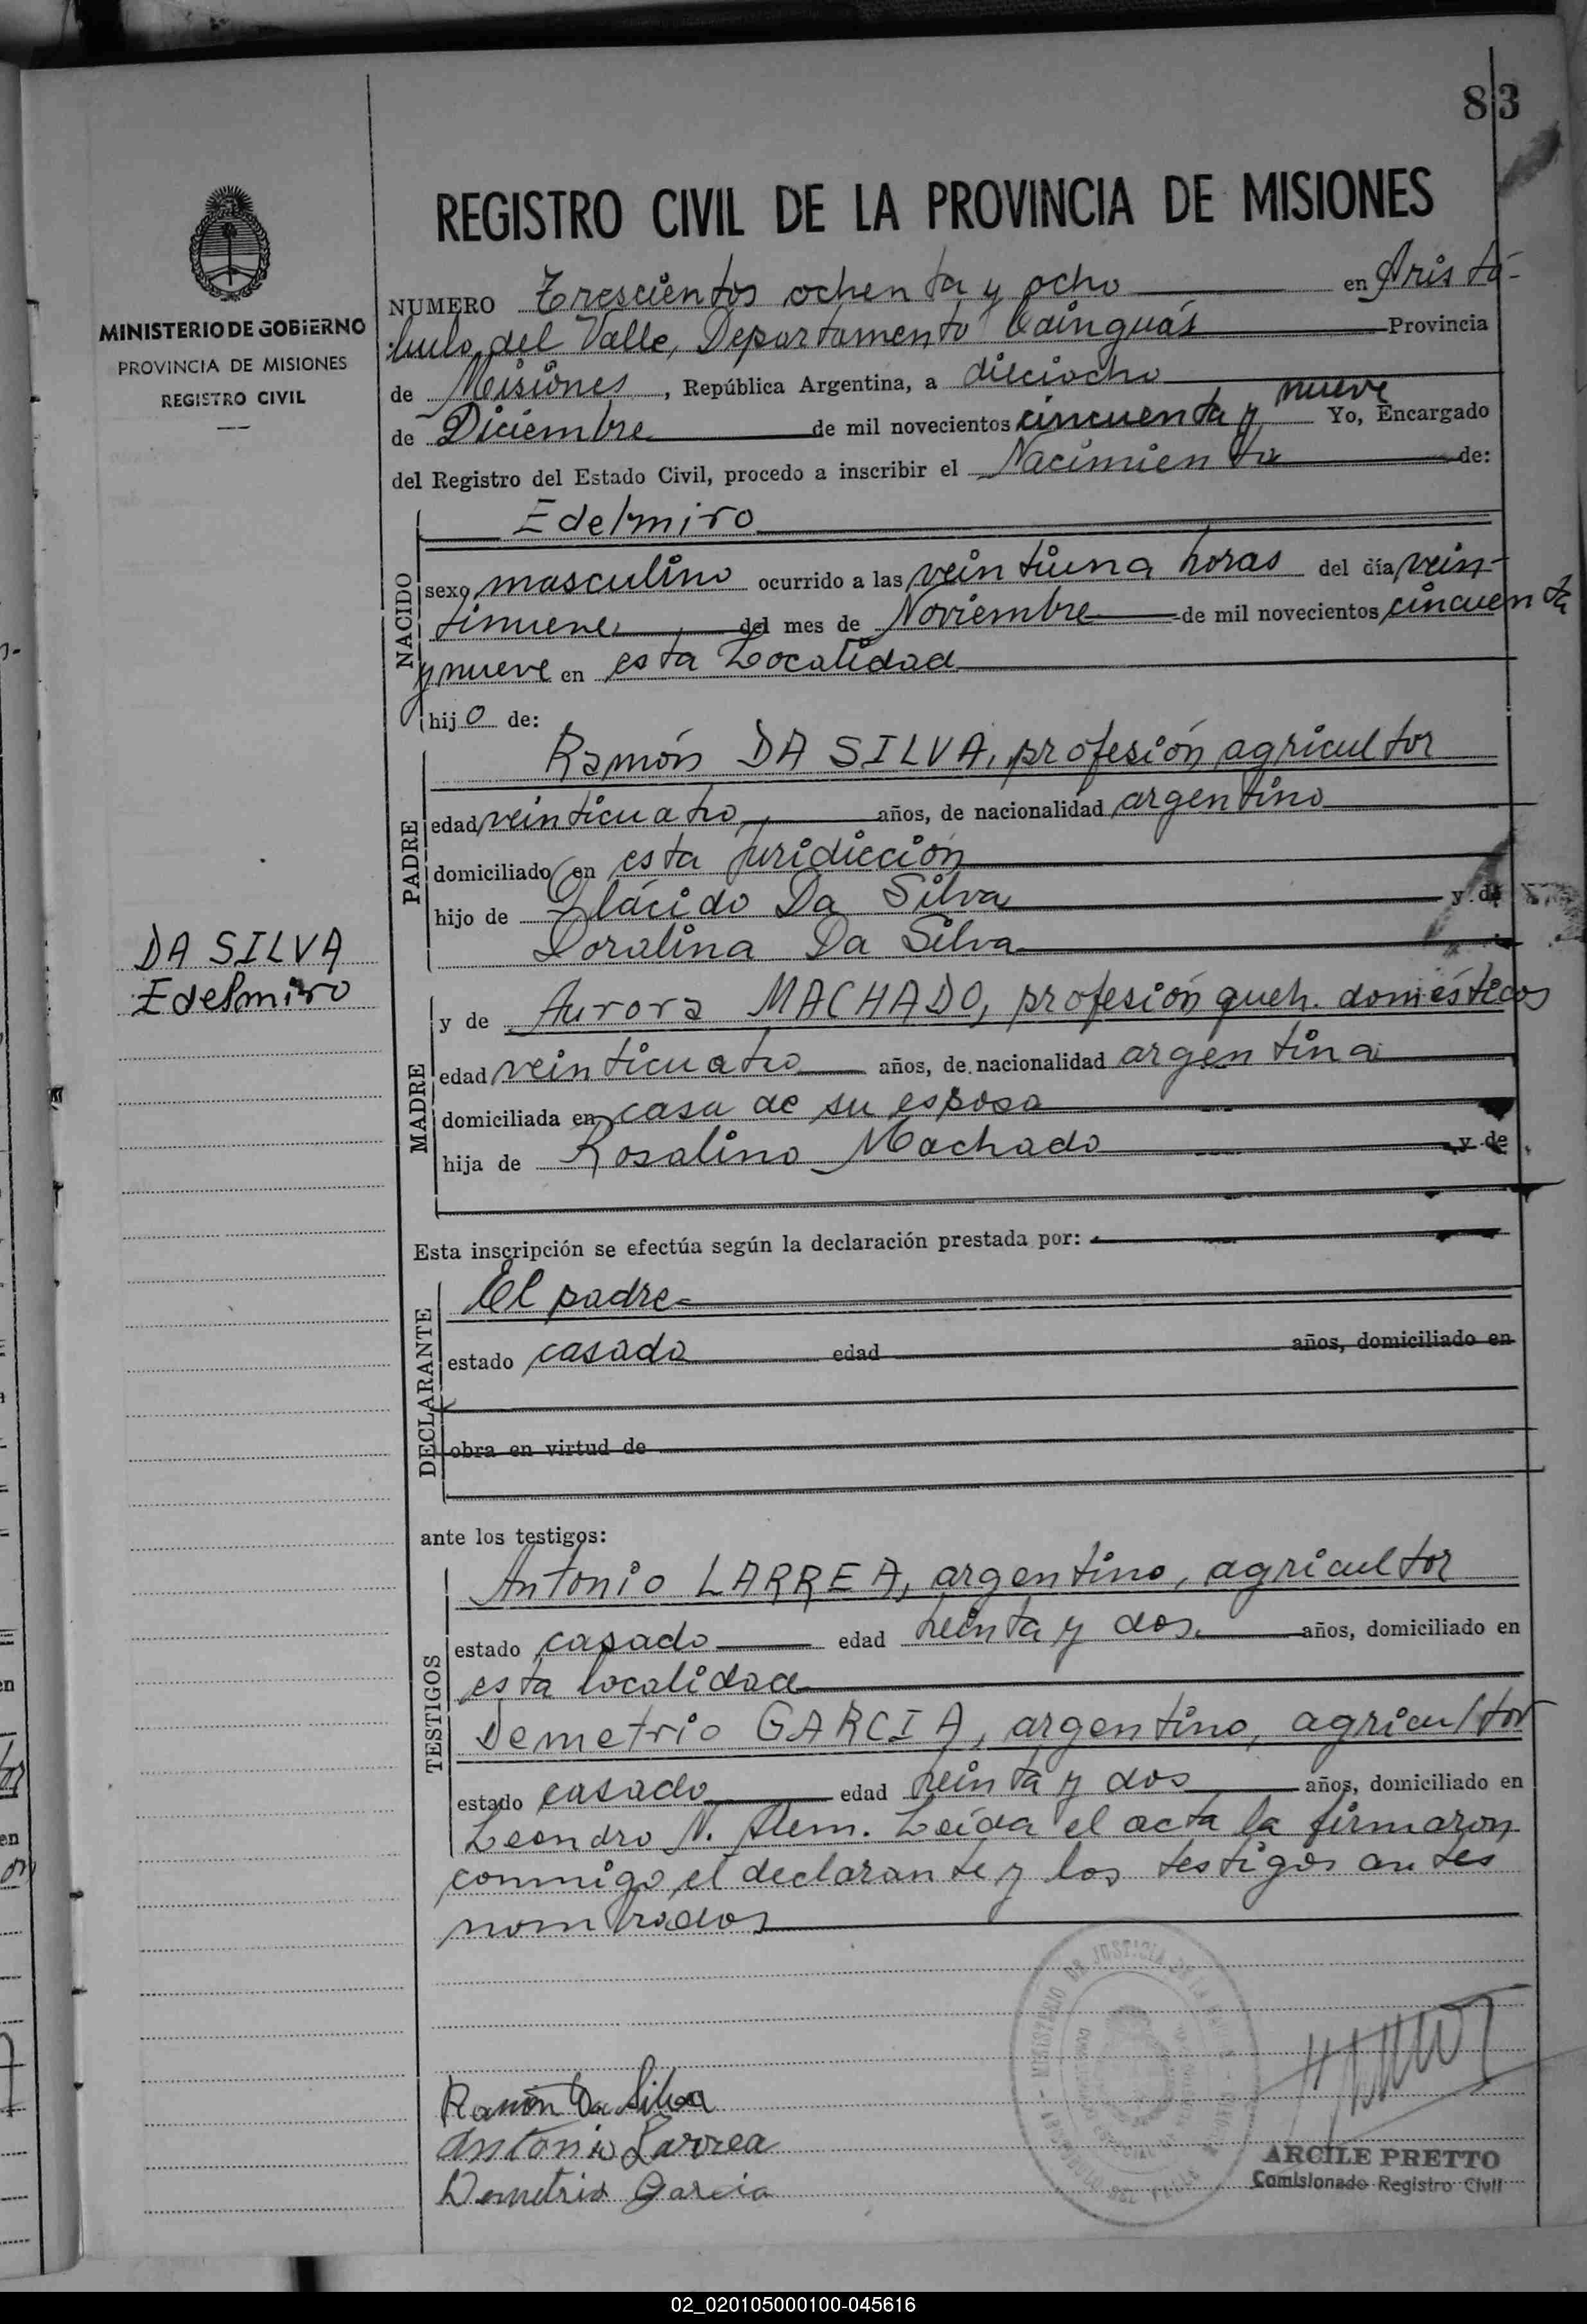 83
REGISTRO CIVIL DE LA PROVINCIA DE MISIONES
MINISTERIO DE GOBIERNO
PROVINCIA DE MISIONES
REGISTRO CIVIL
NUMERO Trescientos ochenta y ocho en Aristó-
bulo del Valle, Departamento Cainguás Provincia
de Misiones, República Argentina, a dieciocho
de Diciembre de mil novecientos cincuenta y nueve Yo, Encargado
del Registro del Estado Civil, procedo a inscribir el Nacimiento de:
NACIDO
Edelmiro
sexo masculino ocurrido a las veintiuna horas del día vein-
tinueve del mes de Noviembre de mil novecientos cincuenta
y nueve en esta Localidad
hijo de:
PADRE
Ramón DA SILVA, profesión agricultor
edad veinticuatro años, de nacionalidad argentino
domiciliado en esta juridicción
hijo de Plácido Da Silva y de
Doralina Da Silva
DA SILVA
Edelmiro
MADRE
y de Aurora MACHADO, profesión queh. domésticos
edad veinticuatro años, de nacionalidad argentina
domiciliada en casa de su esposo
hija de Rosalino Machado y de
Esta inscripción se efectúa según la declaración prestada por:
DECLARANTE
El padre
estado casado edad años, domiciliado en
obra en virtud de
ante los testigos:
TESTIGOS
Antonio LARREA, argentino, agricultor
estado casado edad treinta y dos años, domiciliado en
esta localidad
Demetrio GARCIA, argentino, agricultor
estado casado edad treinta y dos años, domiciliado en
Leandro N. Alem. Leída el acta la firmaron
conmigo el declarante y los testigos antes
nombrados
Ramón Da Silva
Antonio Larrea
Demetrio Garcia
ARCILE PRETTO
Comisionado Registro Civil
02_020105000100-045616